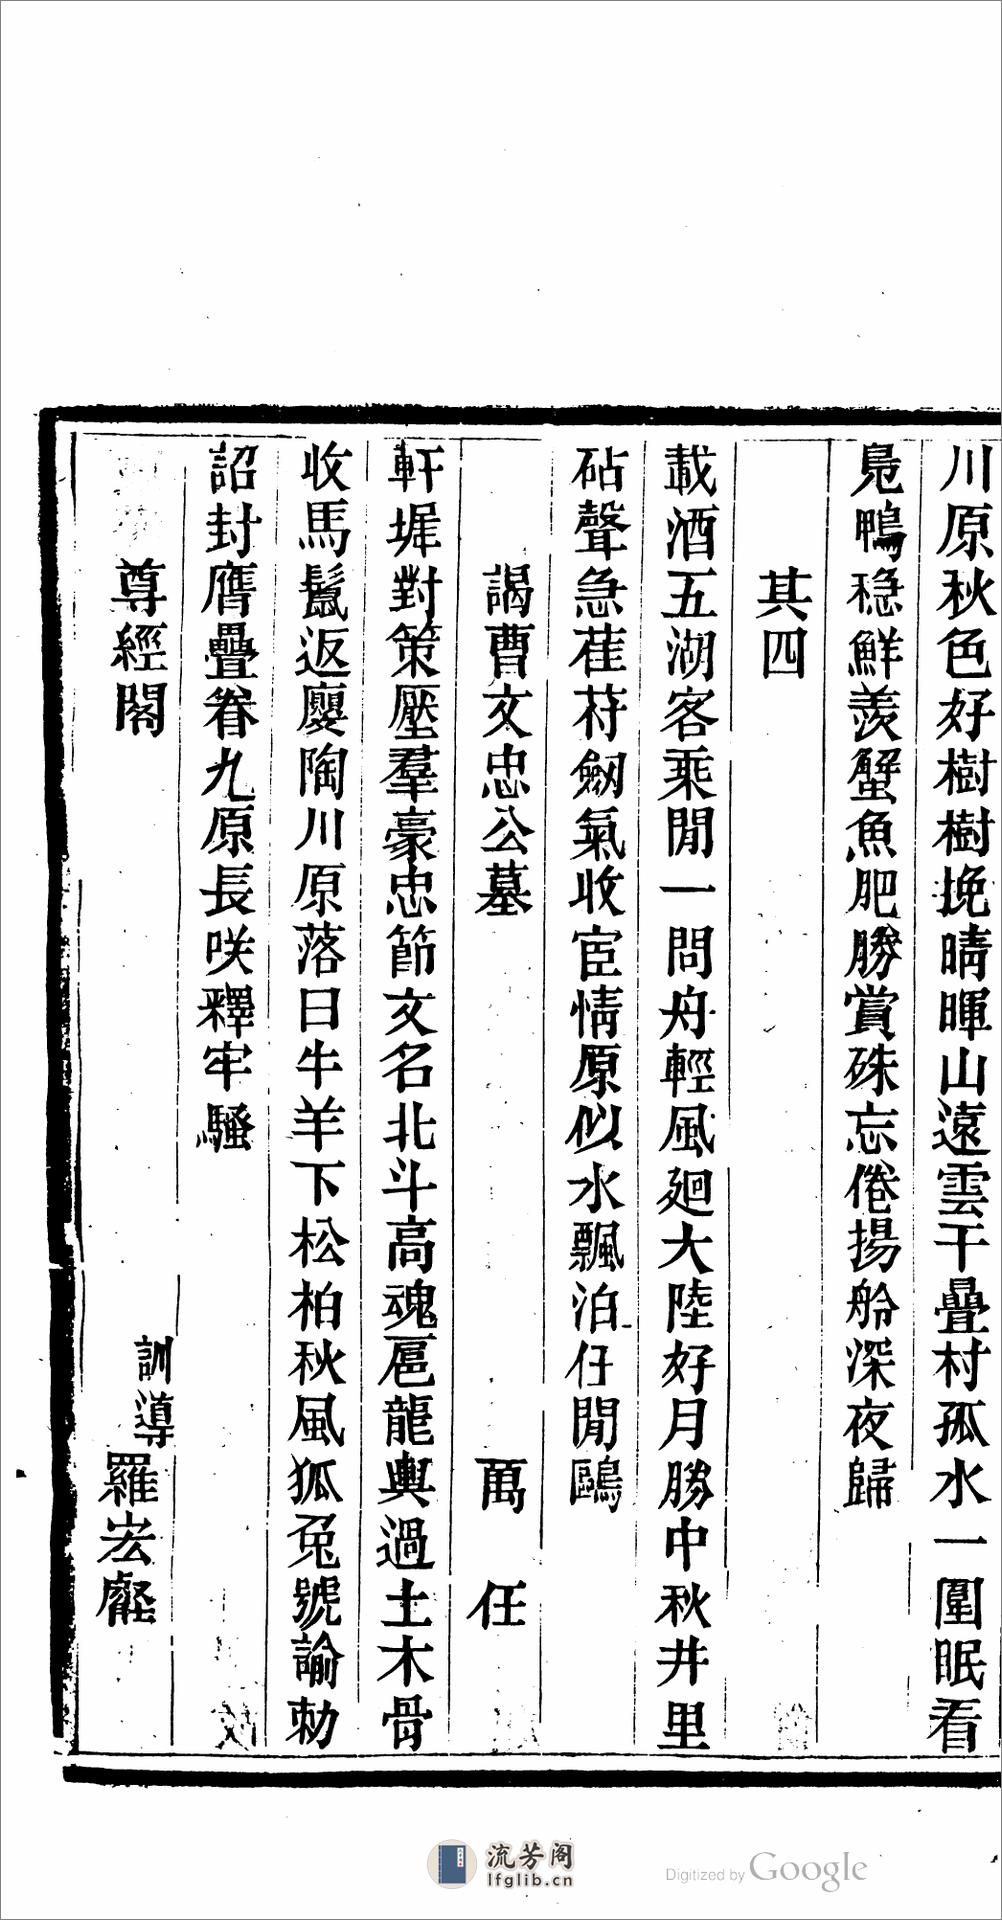 川原秋色好樹樹挽晴暉山遠雲千疊村孤水一圍眠看
鳧鴨穩鮮羨蟹魚肥勝賞殊忘倦揚舲深夜歸
其四
載酒五湖客乘閒一問舟輕風廻大陸好月勝中秋井里
砧聲急萑苻劒氣收宦情原似水飄泊任閒鷗
謁曹文忠公墓 萬任
軒墀對策壓羣豪忠節文名北斗高魂扈龍輿過土木骨
收馬鬛返廮陶川原落日牛羊下松柏秋風狐兔號諭勅
詔封膺疊眷九原長咲釋牢騷
尊經閣 訓導羅宏
流芳阁
lfglib.cn
Digitized by Google